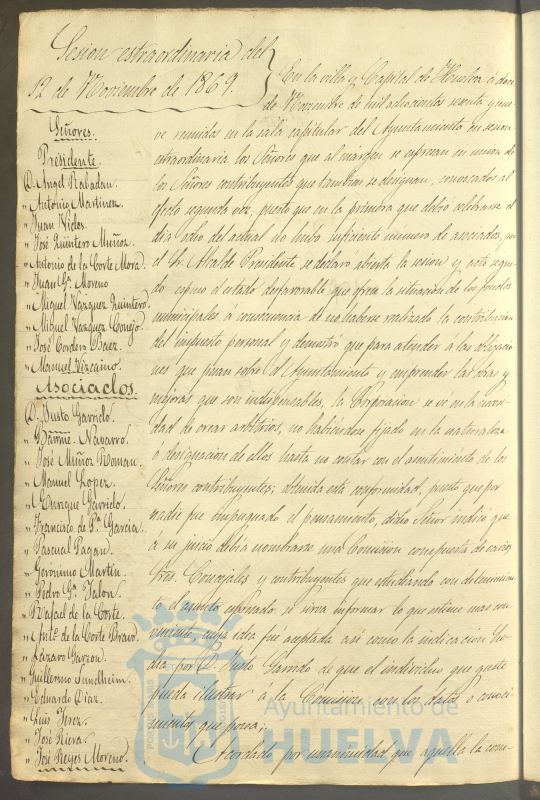 Sesion estraordinaria del
12 de Noviembre de 1869.
Señores.
Presidente.
D. Angel Rabadan.
" Antonio Martinez.
" Juan Vides.
" José Quintero Muñoz.
" Antonio de la Corte Mora.
" Juan Gª. Moreno
" Miguel Vazquez Quintero.
" Miguel Vazquez Conejo.
" José Cordero Baez.
" Manuel Vizcaino.
Asociados.
D. Justo Garrido.
" Barmé. Navarro.
" José Muñoz Roman.
" Manuel Lopez.
" Enrique Garrido.
" Francisco de Pª. Garcia.
" Pascual Pagan.
" Geronimo Martin.
" Pedro Gª. Jalon.
" Rafael de la Corte.
" Antº. de la Corte Bravo.
" Lazaro Garzon.
" Guillermo Sundheim.
" Eduardo Diaz.
" Luis Jerez.
" José Riera.
" José Reyes Moreno.
En la villa, Capital de Huelva a doce
de Noviembre de mil ochocientos sesenta y nue
ve reunidos en la sala capitular del Ayuntamiento en sesion
estraordinaria los Señores que al margen se espresan en union de
los Señores contribuyentes que tambien se designan, convocados al
efecto segunda vez, puesto que en la primera que debió celebrarse el
dia ocho del actual no hubo suficiente número de asociados, por
el Sr. Alcalde Presidente se declaró abierta la sesion y acto segui
do espuso el estado desfavorable que ofrece la situacion de los fondos
municipales á consecuencia de no haberse realizado la contribucion
del impuesto personal y demostró que para atender a las obligacio
nes que pesan sobre el Ayuntamiento y emprender las obras y
mejoras que son indispensables, la Corporacion se vé en la necesi
dad de crear arbitrios, no habiendose fijado en la naturaleza
o designacion de ellos hasta no contar con el asentimiento de los
Señores contribuyentes; obtenida esta conformidad, puesto que por
nadie fue impugnado el pensamiento, dicho Señor indicó que
á su juicio debia nombrarse una Comision compuesta de varios
Sres. Concejales y contribuyentes que estudiando con detenimien
to el asunto espresado se sirva informar lo que estime mas con
veniente, cuya idea fué aceptada asi como la indicacion he
cha por D. Justo Garrido de que el individuo que guste
pueda ilustrar á la Comision con los datos o conoci
mientos que posea;
Acordado por unanimidad que aquella la com-
Ayuntamiento de
HUELVA